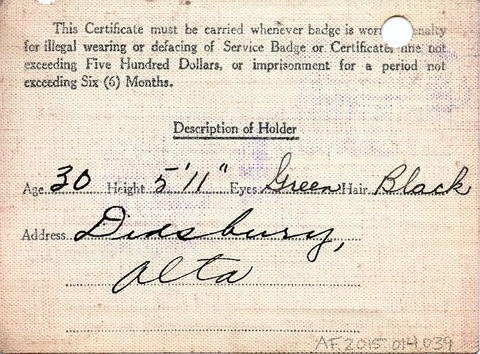 This Certificate must be carried whenever badge is worn
for illegal wearing or defacing of Service Badge or Certificate, fine not
exceeding Five Hundred Dollars, or imprisonment for a period not
exceeding Six (6) Months.
Description of Holder
Age 30 Height 5'11" Eyes Green Hair Black
Address Didsbury,
Alta
AF.2015.014.039